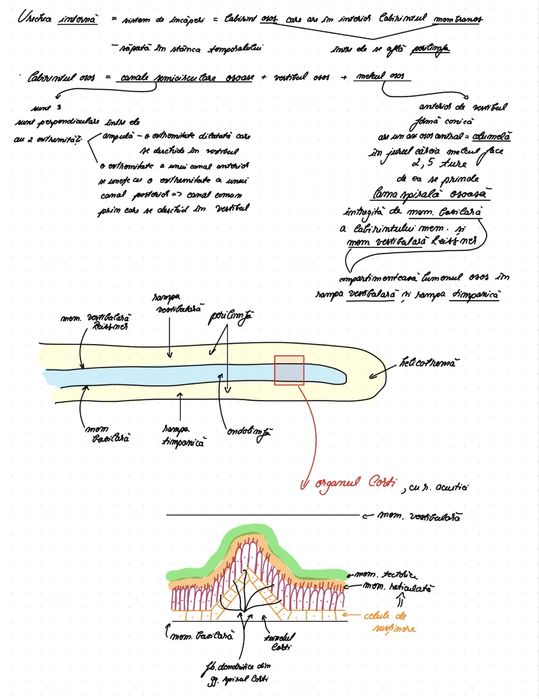 Urechea internă = sistem de încăperi = labirint osos care are în interior labirintul membranos
- săpată în stânca temporalului
între ele se află perilimfă
Labirintul osos = canale semicirculare osoase + vestibul osos + melcul osos
sunt 3
sunt perpendiculare între ele
au 2 extremități
ampulă - o extremitate dilatată care
se deschide în vestibul
o extremitate a unui canal anterior
se unește cu o extremitate a unui
canal posterior => canal comun
prin care se deschid în vestibul
anterior de vestibul
formă conică
are un ax osos central = columelă
în jurul căreia melcul face
2,5 ture
de ea se prinde
lama spirală osoasă
întregită de mem. bazilară
a labirintului mem. și
mem vestibulară Reissner
compartimentează lumenul osos în
rampa vestibulară și rampa timpanică
mem. vestibulară
Reissner
rampa
vestibulară
perilimfă
helicotremă
mem
bazilară
rampa
timpanică
endolimfă
organul Corti, cu r. acustici
mem. vestibulară
mem. tectoria
mem. reticulată
celule de
susținere
mem. bazilară
tunelul
Corti
fb. dendritice din
gg. spiral Corti